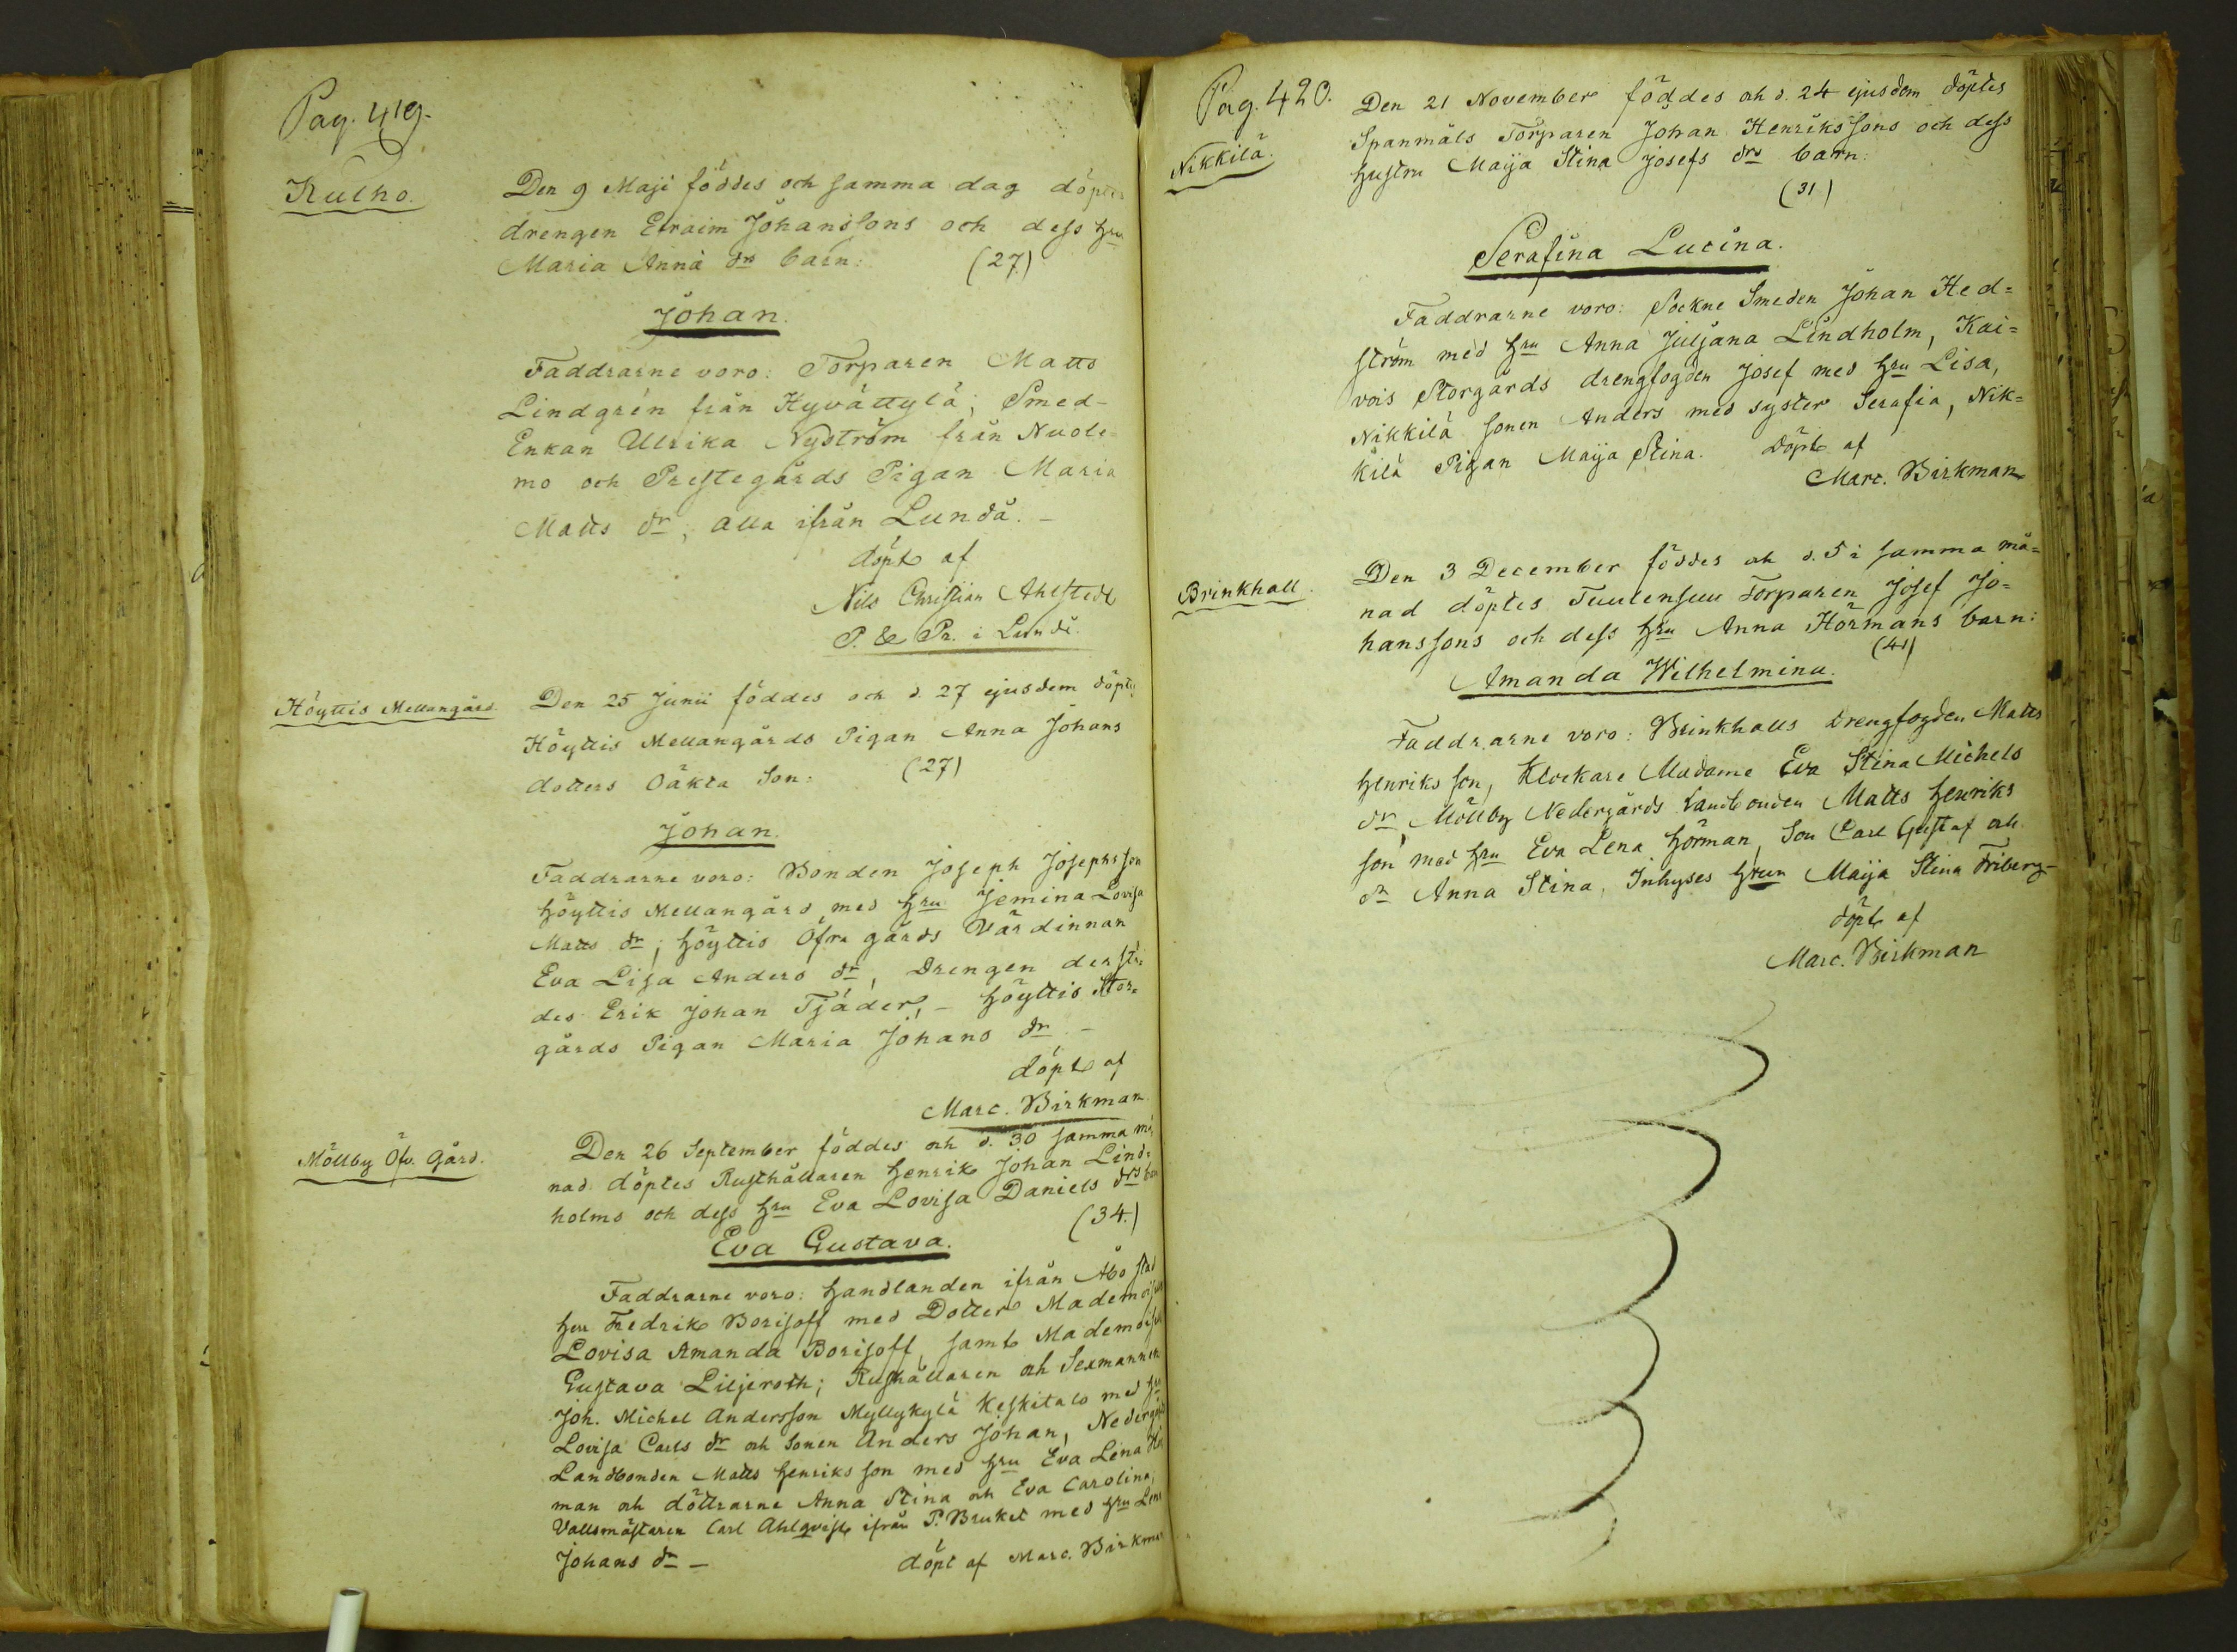 Pag. 419.
Kulho.
Den 9 Maji föddes och samma dag döptes
drengen Efraim Johanssons och dess hru
Maria Anna dr barn: (27)
Johan.
Faddrarne voro: Torparen Matts
Lindgrén från Hyvättylä; Smed-
Enkan Ulrika Nyström från Nuole-
mo och Prestegårds Pigan Maria
Matts dr, alla ifrån Lundå. –
döpt af
Nils Christian Ahlstedt
P. & Pr. i Lundå.
Höyttis Mellangård.
Den 25 Junii föddes och d. 27 ejusdem döptes
Höyttis Mellangårds Pigan Anna Johans
dotters Oäkta Son: (27)
Johan.
Faddrarne voro: Bonden Joseph Josephsson
Höyttis Mellangård, med hru Jemina Lovisa
Matts dr; Höyttis Öfra gårds Värdinnan
Eva Lisa Anders dr, Drengen derstä-
des Erik Johan Tjäder, – Höyttis Stor-
gårds Pigan Maria Johans dr –
döpt af
Marc. Birkman
Möllby Öfv. Gård.
Den 26 September föddes och d. 30 samma må-
nad döptes Rusthållaren Henrik Johan Lind-
holms och dess hru Eva Lovisa Daniels drs barn
(34.)
Eva Gustava.
Faddrarne voro: Handlanden ifrån Åbo stad
Herr Fredrik Borisoff med Dotter Mademoisell
Lovisa Amanda Borisoff, samt Mademoisell
Gustava Liljeroth; Rusthållaren och Sexmannen
Joh. Michel Andersson Myllykylä Keskitalo med hru
Lovisa Carls dr och Sonen Anders Johan, Nedergårds
Landbonden Matts Henriksson med hru Eva Lena Hör-
man och döttrarne Anna Stina och Eva Carolina,
Vallsmästaren Carl Ahlqvist ifrån P. Bruket med hru Lena
Johans dr – döpt af Marc. Birkman
Pag. 420.
Nikkilä.
Den 21 November föddes och d. 24 ejusdem döptes
Spanmåls Torparen Johan Henrikssons och dess
hustru Maija Stina Josefs drs barn:
(31)
Serafina Lucina.
Faddrarne voro: Sockne Smeden Johan Hed-
ström med hru Anna Juljana Lindholm, Kai-
vois Storgårds drengfogden Josef med hru Lisa,
Nikkilä sonen Anders med syster Serafia, Nik-
kilä Pigan Maija Stina. döpt af
Marc. Birkman
Brinkhall.
Den 3 December föddes och d. 5 i samma må-
nad döptes Tuulensuu Torparen Josef Jo-
hanssons och dess hru Anna Hörmans barn:
(41)
Amanda Wilhelmina.
Faddrarne voro: Brinkhalls Drengfogden Matts
Henriksson, Klockare Madame Eva Stina Michels
dr, Möllby Nedergårds Landbonden Matts Henriks
son med hru Eva Lena Hörman, Son Carl Gustaf och
dr Anna Stina, Inhyses hrun Maija Stina Friberg –
döpt af
Marc. Birkman